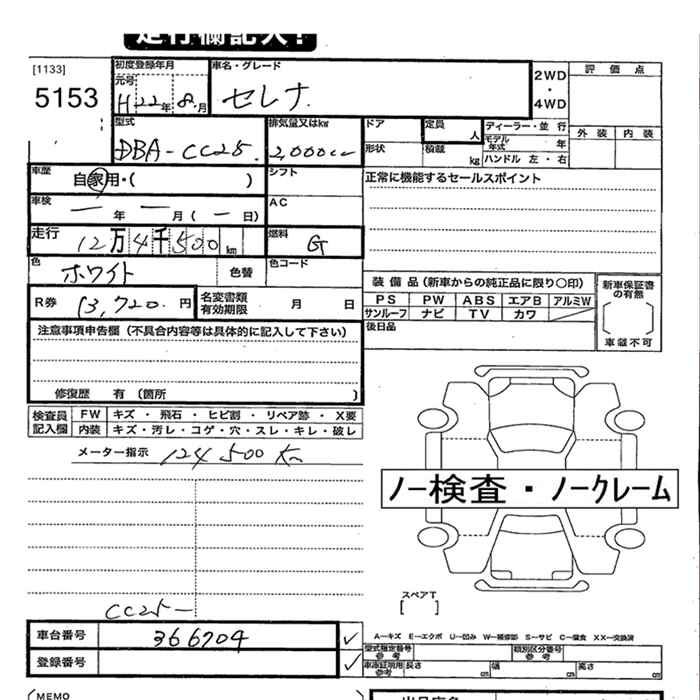 走行欄記入!
[1133]
5153
初度登録年月
元号
H 22年 8.月
車名・グレード
セレナ
2WD
・
4WD
評価点
外装 内装
型式
DBA-CC25
排気量又はkg
2,000cc
ドア
形状
定員
人
積載
kg
ディーラー・並行
モデル年式 年
ハンドル 左・右
車歴
自家用・( )
シフト
正常に機能するセールスポイント
車検
一 年 一 月 ( 一 日)
AC
走行
12万4千500km
燃料
G
色
ホワイト
色替
色コード
装備品(新車からの純正品に限り〇印)
新車保証書の有無
R券
13,720.円
名変書類有効期限
月 日
PS PW ABS エアB アルミW
サンルーフ ナビ TV カワ
車載不可
後日品
注意事項申告欄(不具合内容等は具体的に記入して下さい)
修復歴 有 〔箇所 〕
検査員記入欄
FW キズ・飛石・ヒビ割・リペア跡・X要
内装 キズ・汚レ・コゲ・穴・スレ・キレ・破レ
メーター指示 124500km
ノー検査・ノークレーム
スペアT
[ ]
CC25-
車台番号 366704 ✓
登録番号 ✓
A-キズ E-エクボ U-凹み W-補修跡 S-サビ C-腐食 XX-交換済
型式指定番号
参考
類別区分番号
参考
車凍証明用
参考
長さ cm 幅 cm 高さ cm
MEMO
出品店名